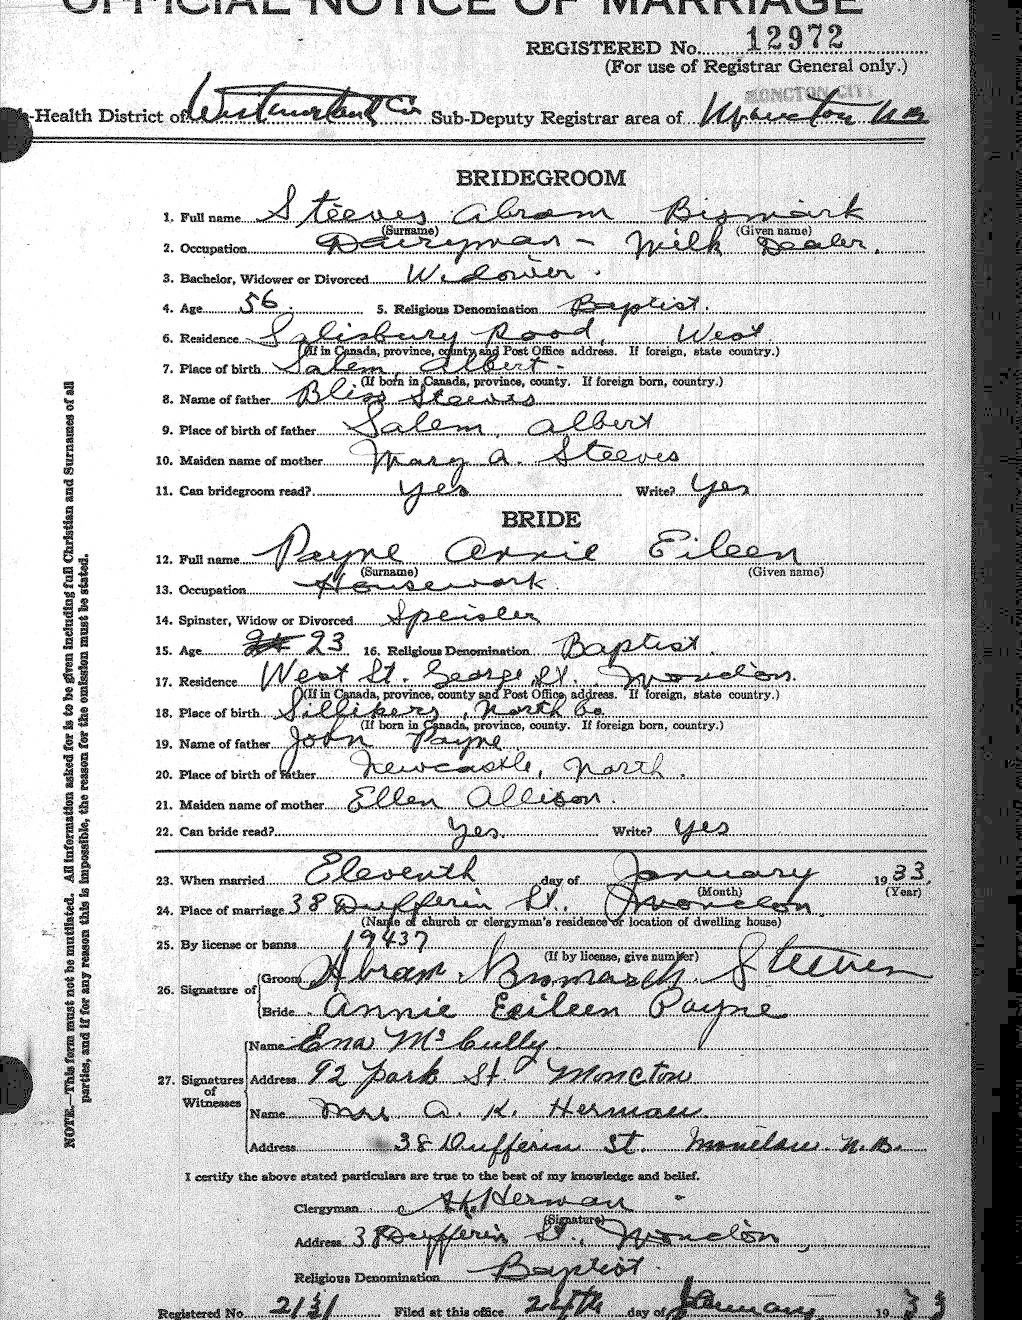 OFFICIAL NOTICE OF MARRIAGE
REGISTERED No. 12972
(For use of Registrar General only.)
MONCTON CITY
-Health District of Westmorland Co. Sub-Deputy Registrar area of Moncton N B
BRIDEGROOM
1. Full name Steeves Abram Bismark
(Surname) (Given name)
2. Occupation Dairyman - Milk Dealer.
3. Bachelor, Widower or Divorced Widower.
4. Age 56 5. Religious Denomination Baptist.
6. Residence Salisbury Road, West
(If in Canada, province, county and Post Office address. If foreign, state country.)
7. Place of birth Salem, Albert-
(If born in Canada, province, county. If foreign born, country.)
8. Name of father Bliss Steeves
9. Place of birth of father Salem, Albert
10. Maiden name of mother Mary A. Steeves
11. Can bridegroom read? Yes Write? Yes
BRIDE
12. Full name Payne Annie Eileen
(Surname) (Given name)
13. Occupation Housework.
14. Spinster, Widow or Divorced Speisler
15. Age 23 16. Religious Denomination Baptist.
17. Residence West St. George St. Moncton.
(If in Canada, province, county and Post Office address. If foreign, state country.)
18. Place of birth Sillikers, North Co
(If born in Canada, province, county. If foreign born, country.)
19. Name of father John Payne
20. Place of birth of father Newcastle, North.
21. Maiden name of mother Ellen Allison.
22. Can bride read? Yes. Write? Yes
23. When married Eleventh day of January 1933.
(Month) (Year)
24. Place of marriage 38 Dufferin St., Moncton
(Name of church or clergyman's residence or location of dwelling house)
25. By license or banns 19437
(If by license, give number)
26. Signature of Groom Abram Bismarck Steeves
Bride Annie Eileen Payne
27. Signatures of Witnesses
Name Ena McCully
Address 92 Park St. Moncton
Name Mrs A. K. Herman
Address 38 Dufferin St. Moncton N.B.
I certify the above stated particulars are true to the best of my knowledge and belief.
Clergyman A.K. Herman
(Signature)
Address 38 Dufferin St., Moncton,
Religious Denomination Baptist.
Registered No. Filed at this office 24th day of January 1933
NOTE.—This form must not be mutilated. All information asked for is to be given including full Christian and Surnames of all
parties, and if for any reason this is impossible, the reason for the omission must be stated.